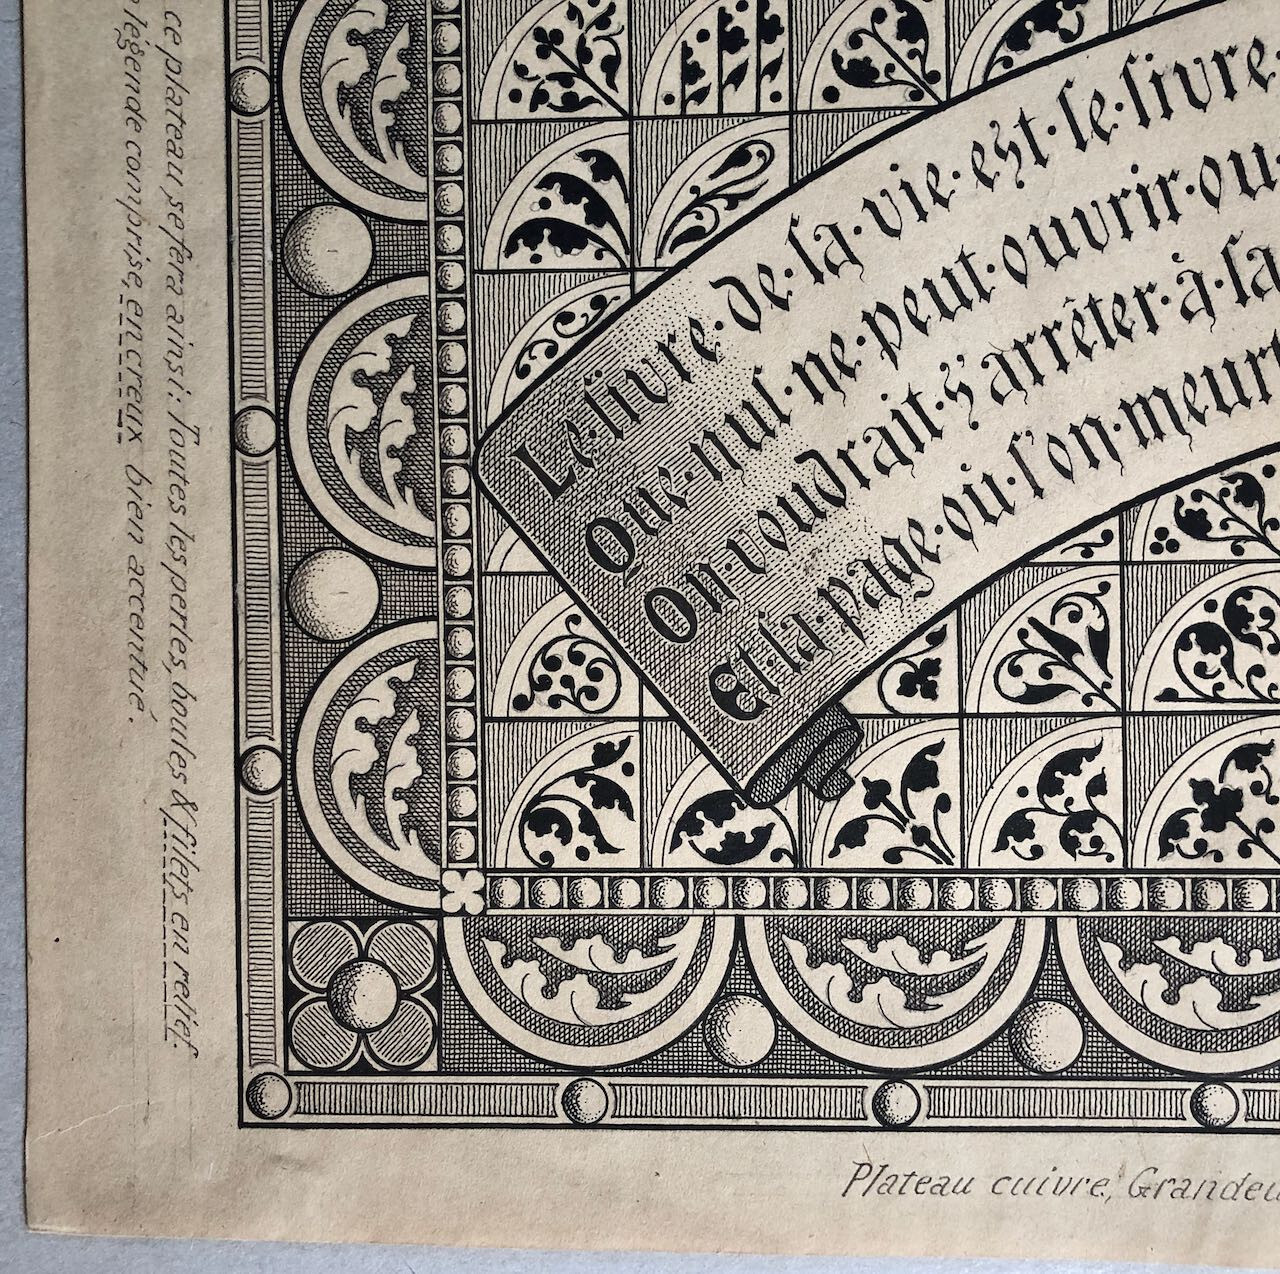 Le·livre·de·la·vie·est·le·livre
Que·nul·ne·peut·ouvrir·ou
On·voudrait·s'arrêter·à·la
Et·la·page·où·l'on·meurt
ce plateau, se fera ainsi: Toutes les perles, boules & filets en relief.
légende comprise, en creux bien accentué.
Plateau cuivre, Grandeu